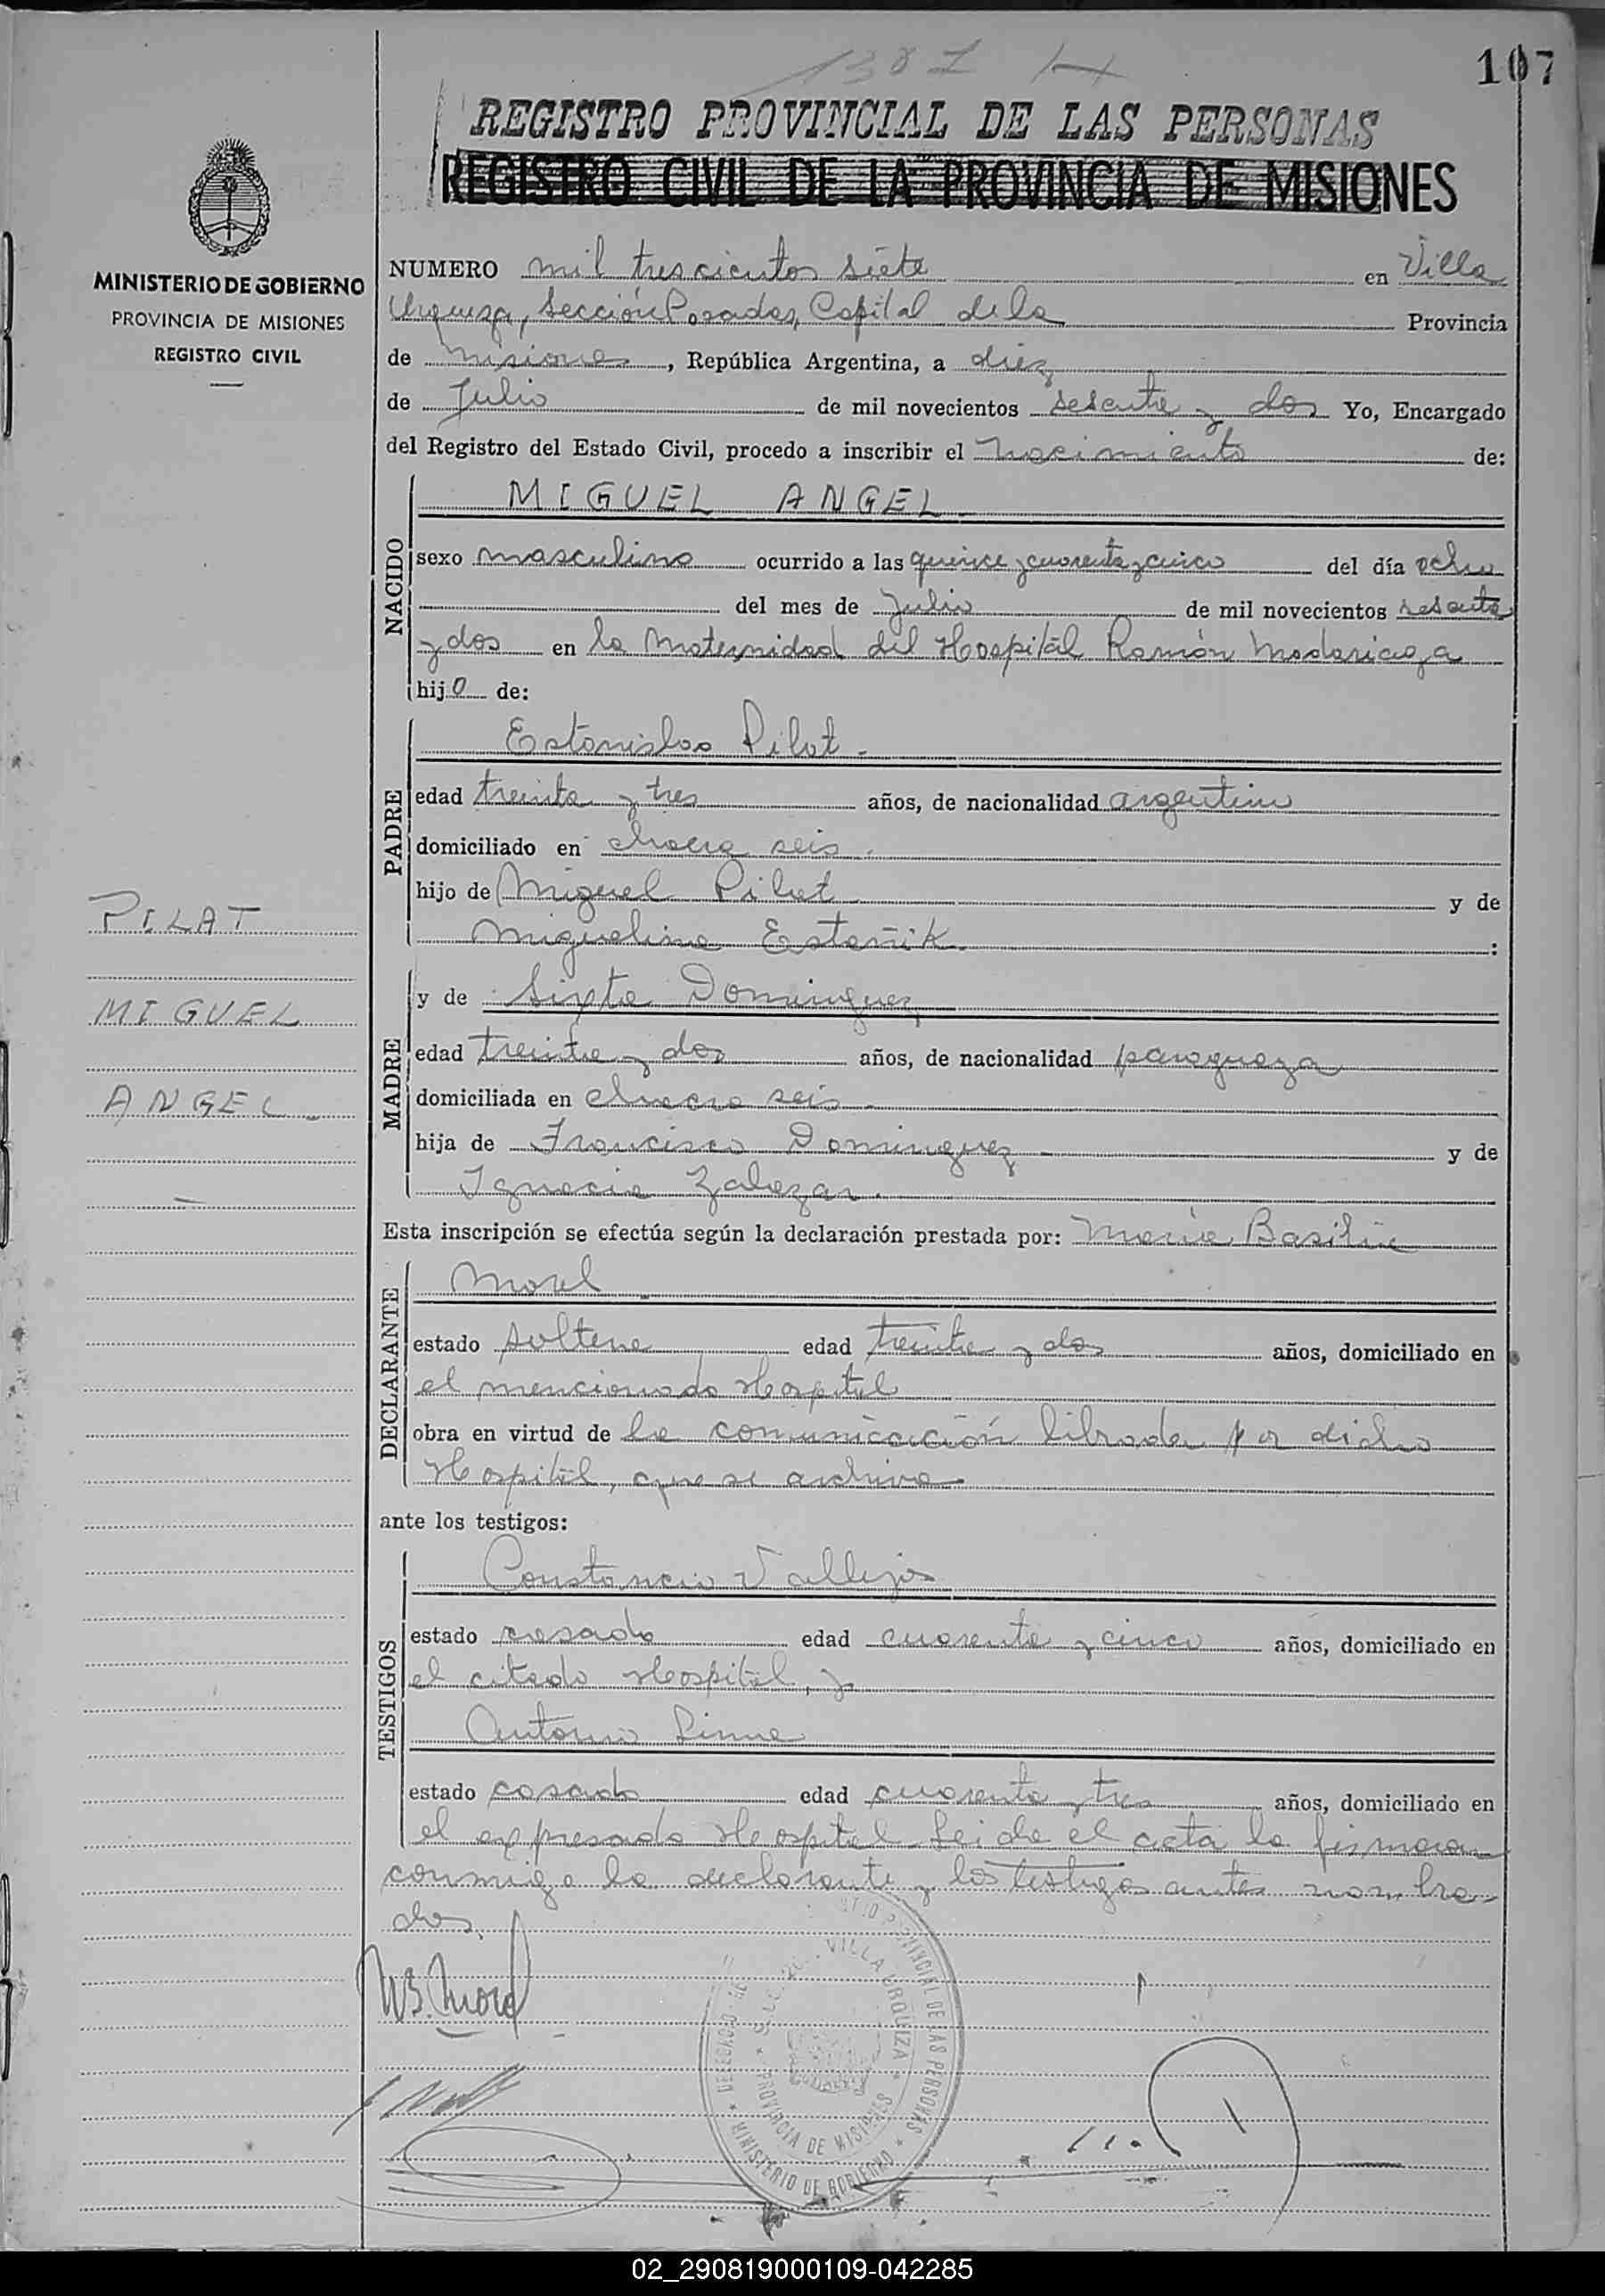 107
REGISTRO PROVINCIAL DE LAS PERSONAS
REGISTRO CIVIL DE LA PROVINCIA DE MISIONES
MINISTERIO DE GOBIERNO
PROVINCIA DE MISIONES
REGISTRO CIVIL
NUMERO mil trescientos siete en Villa
Urquiza, Sección Posadas, Capital de la Provincia
de Misiones, República Argentina, a diez
de Julio de mil novecientos sesenta y dos Yo, Encargado
del Registro del Estado Civil, procedo a inscribir el nacimiento de:
NACIDO
MIGUEL ANGEL
sexo masculino ocurrido a las quince y cuarenta y cinco del día ocho
del mes de Julio de mil novecientos sesenta
y dos en la Maternidad del Hospital Ramón Madariaga
hijo de:
PADRE
Estanislao Pilat.
edad treinta y tres años, de nacionalidad argentino
domiciliado en chacra seis.
hijo de Miguel Pilat y de
Miguelina Estañik:
PILAT
MIGUEL
ANGEL
MADRE
y de Sixta Dominguez
edad treinta y dos años, de nacionalidad paragueza
domiciliada en chacra seis
hija de Francisco Dominguez y de
Ignacia Zalazar.
Esta inscripción se efectúa según la declaración prestada por: María Basilia
DECLARANTE
Morel
estado soltera edad treinta y dos años, domiciliado en
el mencionado Hospital
obra en virtud de la comunicación librada por dicho
Hospital, que se archiva
ante los testigos:
TESTIGOS
Constancio Vallejos
estado casado edad cuarenta y cinco años, domiciliado en
el citado Hospital, y
Antonio
estado casado edad cuarenta y tres años, domiciliado en
el expresado Hospital. Leida el acta la firmaran
conmigo la declarante y los testigos antes nombra-
dos.
M B. Morel
VILLA URQUIZA
PROVINCIA DE MISIONES
PROVINCIAL DE LAS PERSONAS
MINISTERIO DE GOBIERNO
02_290819000109-042285